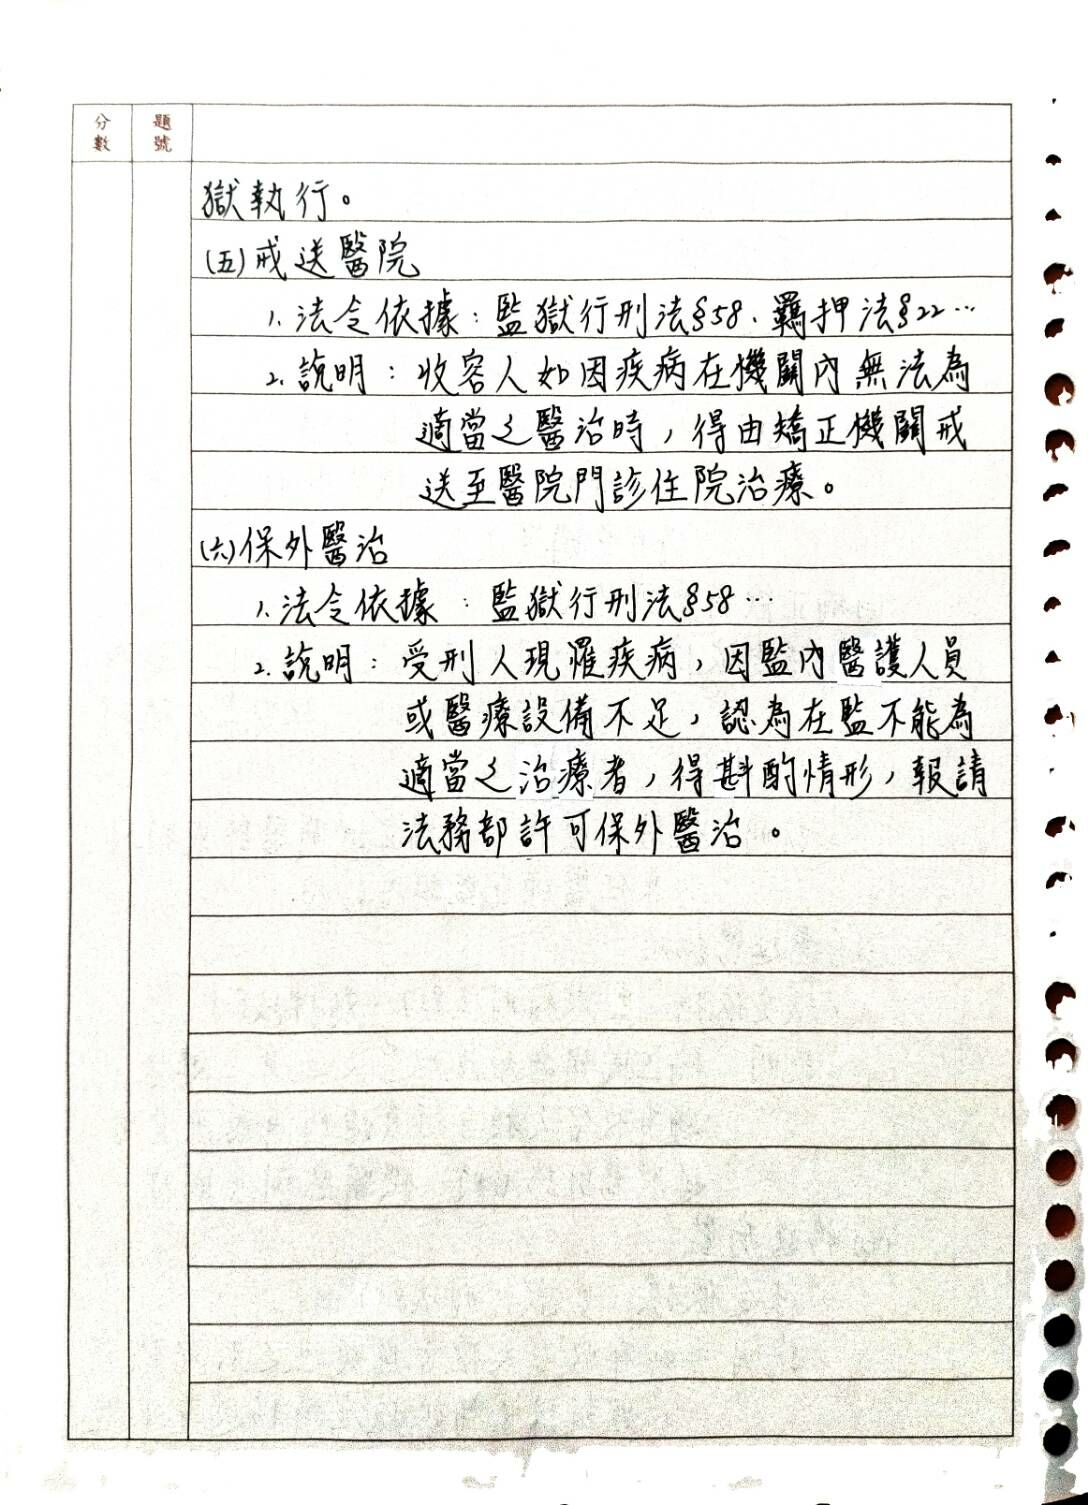 分數 題號
獄執行。
(五)戒送醫院
1. 法令依據：監獄行刑法§58、羈押法§22…
2. 說明：收容人如因疾病在機關內無法為
適當之醫治時，得由矯正機關戒
送至醫院門診住院治療。
(六)保外醫治
1. 法令依據：監獄行刑法§58…
2. 說明：受刑人現罹疾病，因監內醫護人員
或醫療設備不足，認為在監不能為
適當之治療者，得斟酌情形，報請
法務部許可保外醫治。